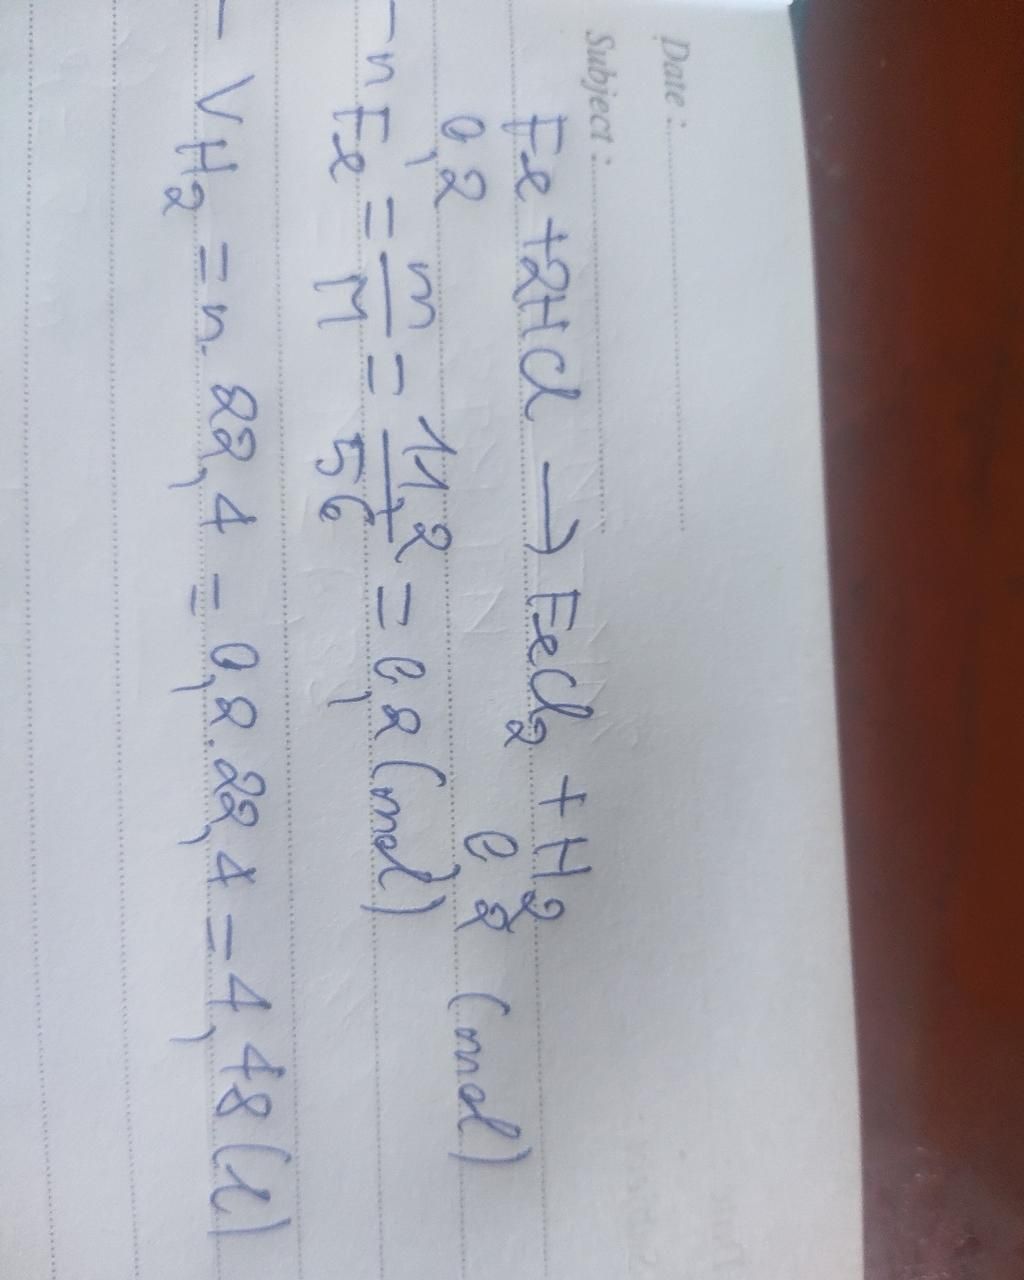 Date :
Subject :
Fe + 2HCl → FeCl₂ + H₂
0,2 0,2 (mol)
- nFe = m/M = 11,2/56 = 0,2 (mol)
- VH₂ = n. 22,4 = 0,2. 22,4 = 4,48 (l)